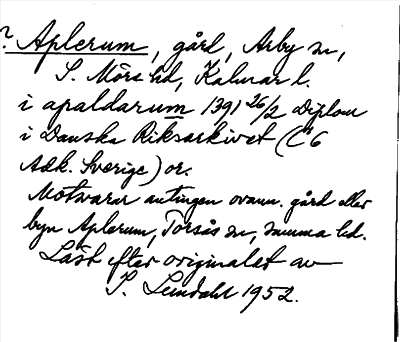 ? Aplerum, gård, Arby sn,
S. Möre hd, Kalmar l.
i apaldarum 1391 26/2 Diplom
i Danska Riksarkivet (C 6
Adk. Sverige) or.
Motsvarar antingen ovann. gård eller
byn Aplerum, Torsås sn, samma hd.
Läst efter originalet av
I. Lundahl 1952.